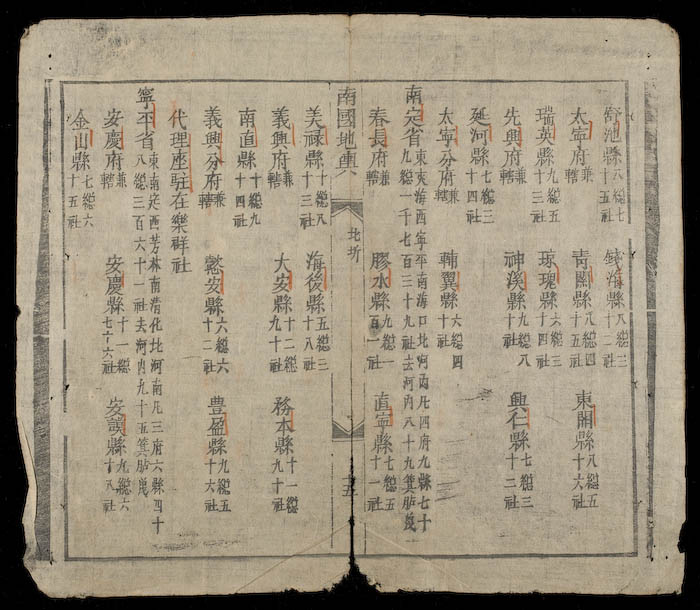 舒池縣八総七十五社　錢海縣八総三十二社
太寧府兼轄　青關縣八総四十五社　東關縣八総五十六社
瑞英縣九総五十九社　琼瑰縣六総三十四社
先興府兼轄　神溪縣九総八十八社　興仁縣七総三十二社
延河縣七総三十四社
太寧分府兼轄　輔翼縣六総四十社
南定省東夾海西寧平南海口北河內凡四府九縣七十九総一千七百三十九社去河內八十九箕
春長府兼轄　膠水縣九総一百一社　直寧縣七総五十一社
南國地輿　北圻　十五
美禄縣十総八十三社　海後縣五総三十八社
義興府兼轄　大安縣十二総九十社　務本縣十一総九十社
南直縣十総九十四社
義興分府兼轄　懿安縣六総六十二社　豊盈縣九総五十六社
代理座駐在樂群社
寧平省東南定西芳林南清化北河南凡三府六縣四十八総三百六十一社去河內九十五箕
安慶府兼轄　安慶縣十一総七十六社　安謨縣九総六十八社
金山縣七総六十五社